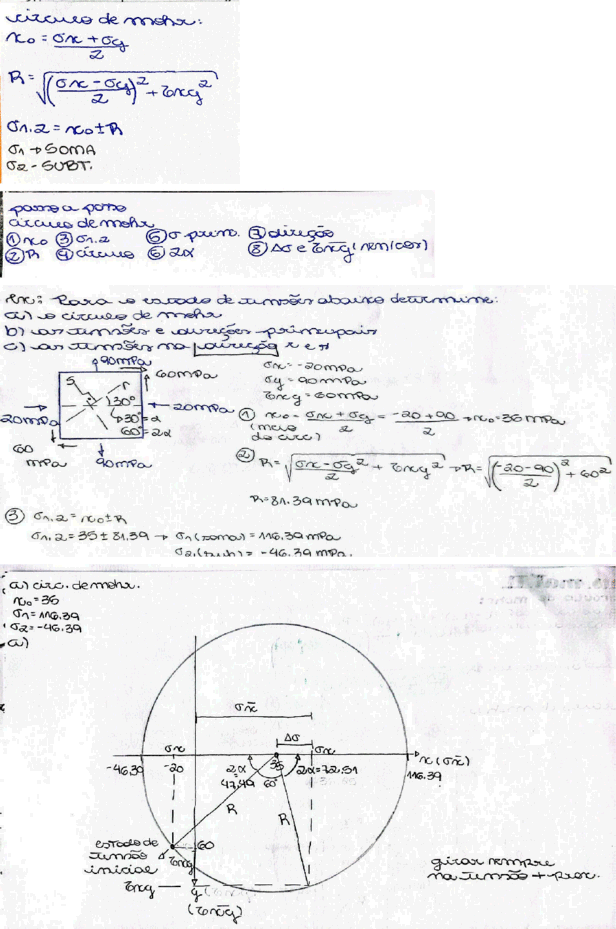 círculo de mohr:
x₀ = σx + σy / 2
R = √((σx - σy / 2)² + τxy²)
σ1.2 = x₀ ± R
σ1 → SOMA
σ2 - SUBT.
passo a passo
círculo de mohr
① x₀ ③ σ1.2 ⑤ σ princ. ⑦ direção
② R ④ círculo ⑥ 2α ⑧ Δσ e τx̄ȳ (sen/cos)
Ex: Para o estado de tensões abaixo determine:
a) o círculo de mohr
b) as tensões e direções principais
c) as tensões na direção r e s
90MPa
60MPa
S r
30°
30° = α
60° = 2α
20MPa
20MPa
60 MPa
90MPa
σx = -20MPa
σy = 90MPa
τxy = 60MPa
① x₀ = σx + σy / 2 = -20 + 90 / 2 → x₀ = 35 MPa
(meio do circ)
② R = √(σx - σy / 2 ² + τxy²) → R = √((-20 - 90 / 2)² + 60²)
R = 81.39 MPa
③ σ1.2 = x₀ ± R
σ1.2 = 35 ± 81.39 → σ1 (soma) = 116.39 MPa
σ2 (sub) = -46.39 MPa.
a) circ. de mohr.
x₀ = 35
σ1 = 116.39
σ2 = -46.39
a)
σx̄
Δσ
σx
σx
x (σx̄)
-46.39
-20
2α = 47,49
35
60°
2α = 72,51
116.39
R
R
estado de tensão inicial
τxy
60
τxy
y
(τx̄ȳ)
girar sempre
na tensão + prox.